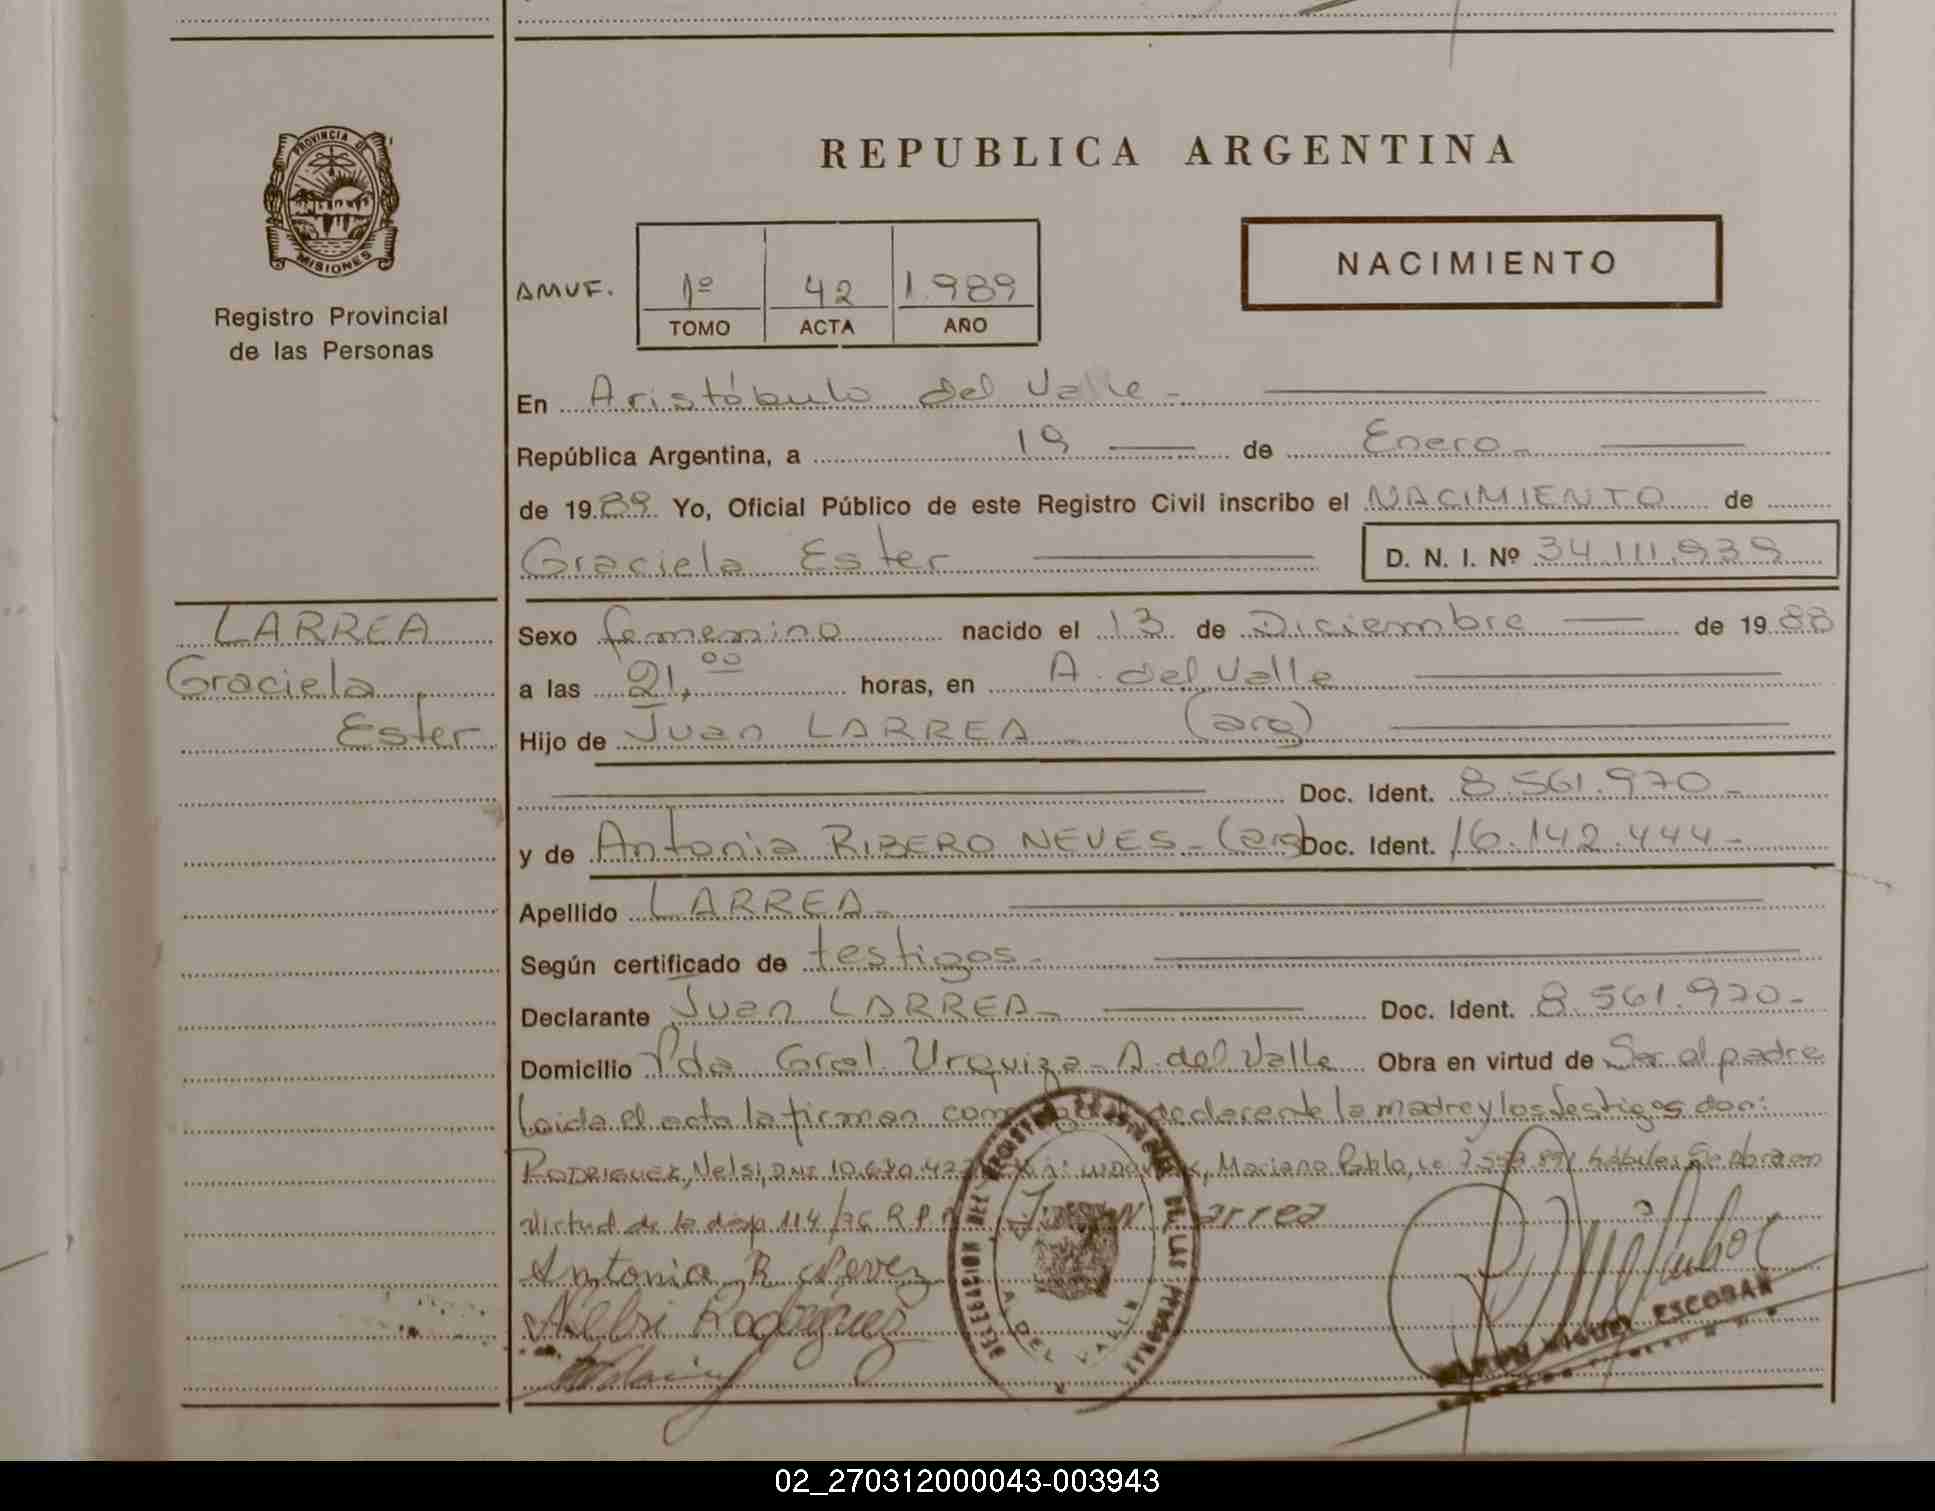 PROVINCIA DE
MISIONES
Registro Provincial
de las Personas
REPUBLICA ARGENTINA
NACIMIENTO
AMUF.
1º 42 1.989
TOMO ACTA AÑO
En Aristóbulo del Valle -
República Argentina, a 19 de Enero -
de 1989 Yo, Oficial Público de este Registro Civil inscribo el NACIMIENTO de
Graciela Ester D. N. I. Nº 34.111.939
LARREA
Graciela
Ester
Sexo femenino nacido el 13 de Diciembre de 1988
a las 21,00 horas, en A. del Valle
Hijo de Juan LARREA (arg)
Doc. Ident. 8.561.970 -
y de Antonia RIBERO NEVES - (arg) Doc. Ident. 16.142.444 -
Apellido LARREA -
Según certificado de testigos -
Declarante Juan LARREA - Doc. Ident. 8.561.970 -
Domicilio Pda Gral. Urquiza - A. del Valle Obra en virtud de Ser el padre
Leida el acta la firman con declarante la madre y los testigos don:
RODRIGUEZ, Nelsi, DNI 10.670.42 Mariano Pablo, LE hábiles Se obra en
virtud de la disp 114/76 R P P Juan Larrea
Antonia R Nevez
Nelsi Rodriguez
DELEGACION DEL REGISTRO DE LAS PERSONAS
A. DEL VALLE
MIGUEL ESCOBAR
02_270312000043-003943